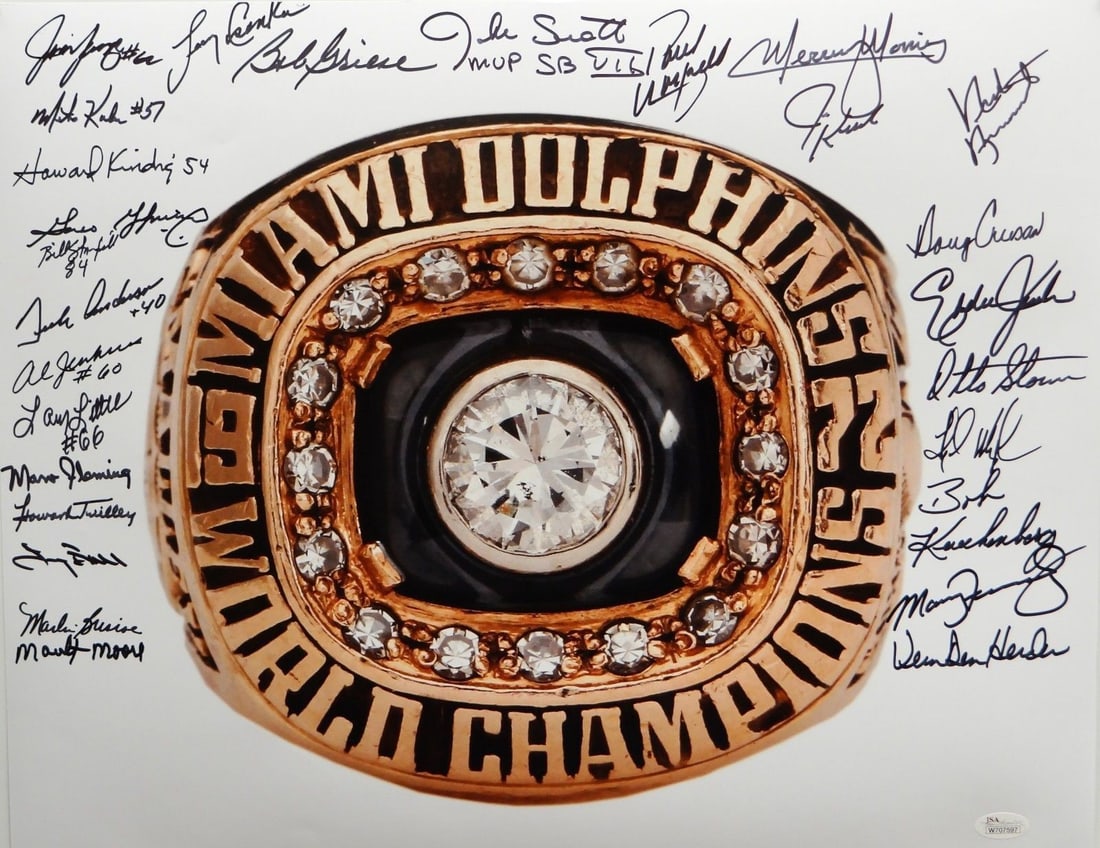 Jim Langer #62
Larry Csonka
Bob Griese
Jake Scott
MVP SB VII
Paul Warfield
Mercury Morris
J Kiick
Mike Kolen #57
Howard Kindig 54
Garo Yepremian
Bill Stanfill
84
Dick Anderson
#40
Al Jenkins
#60
Larry Little
#66
Marv Fleming
Howard Twilley
Marlin Briscoe
Maulty Moore
Doug Crusan
Eddie Jenkins
Otto Stowe
Bob
Kuechenberg
Manny Fernandez
Vern Den Herder
MIAMI DOLPHINS
19 72
WORLD CHAMPIONS
JSA
W707597